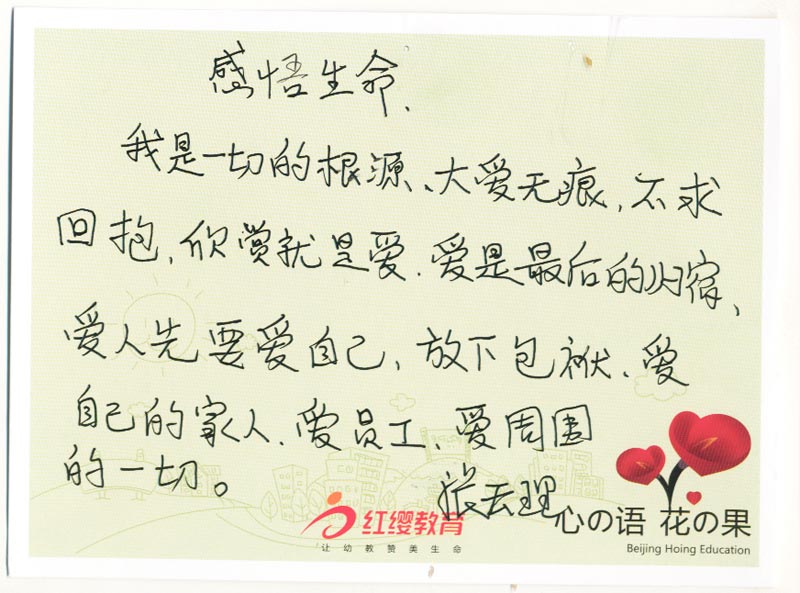 感悟生命.
我是一切的根源、大爱无痕,不求
回抱,欣赏就是爱.爱是最后的归宿、
爱人先要爱自己,放下包袱、爱
自己的家人、爱员工、爱周围
的一切。
张云理
红缨教育
让幼教赞美生命
心の语 花の果
Beijing Hoing Education